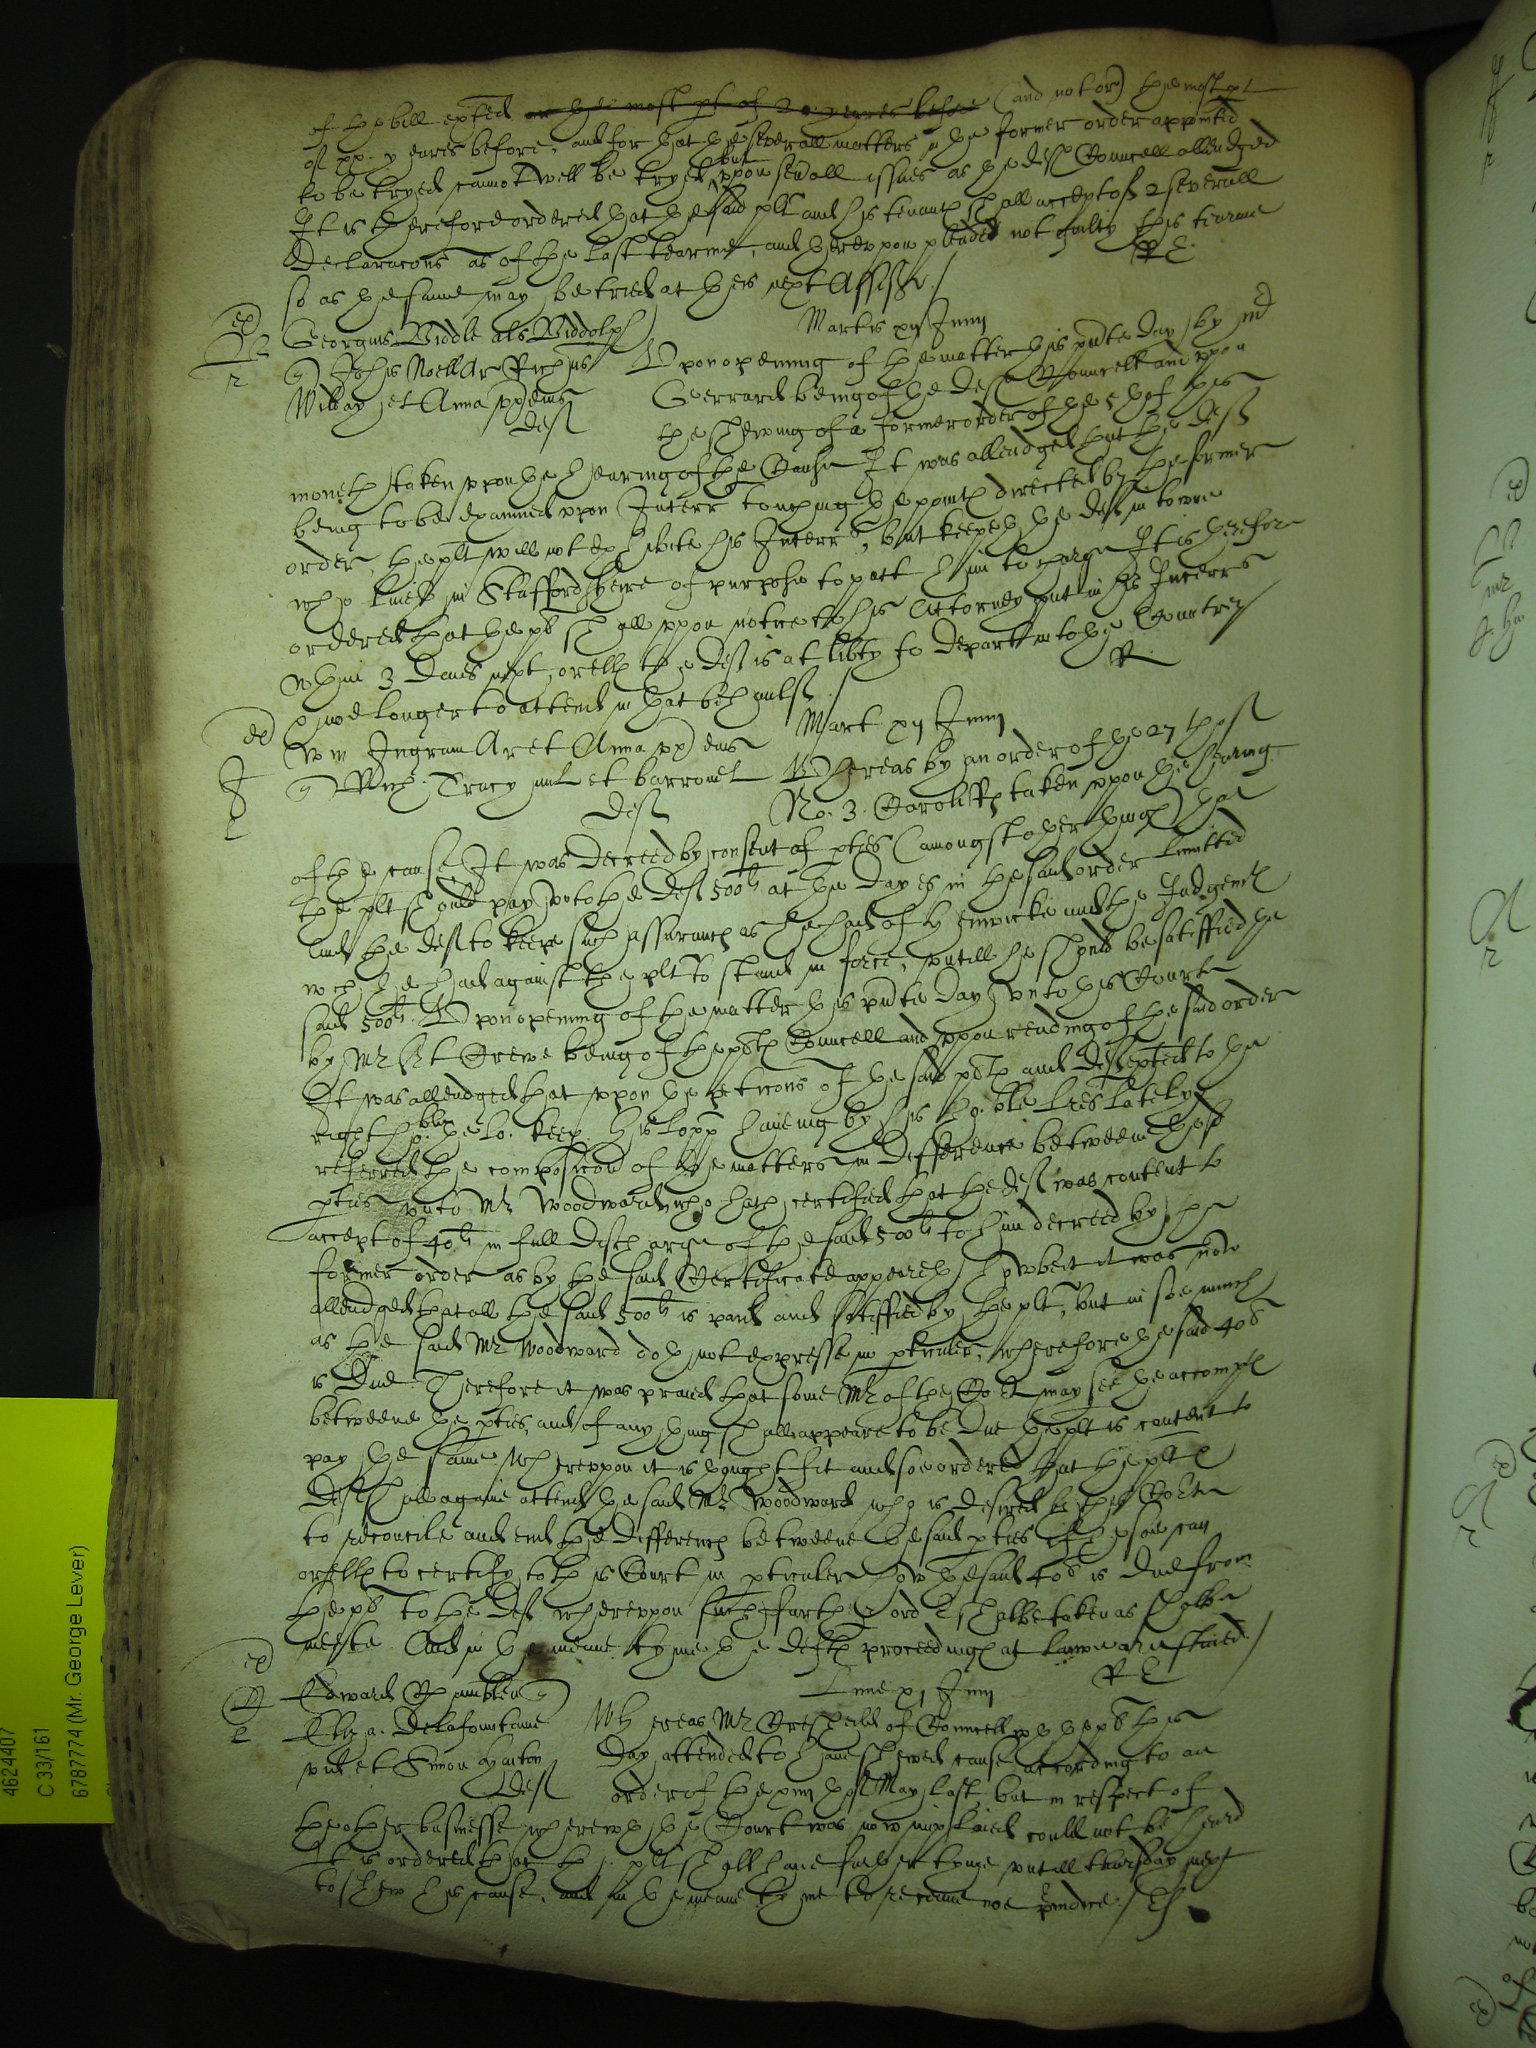 of the bill exhited or the most pt of 20 yeares before (and not or) the most pt
of xx. yeares before, and for that the severall matters in the former order appointed
to be tryed cannot well be tryed but vpon severall issues as the defts Councell alleadged
It is therefore ordered that the said plt and his tenants shall accept of 2 severall
declaracons as of the last tearme, and therevpon pleade not guilty this tearme
so as the same may be tried at the next Assises /
R E.
ex
Martis xij Junij
Georgius Biddle als Biddolph
q Johis Noell Ar Rich us
Wilday et Anna vx eius
def
Vpon opening of the matter this pnte day by mr
Gerrard being of the defts Councell and vpon
the shewing of a former order of the 5th of this
moneth taken vpon the hearing of the Cause It was alleadged that the deft
being to be examined vpon Interr touching the points directed by the former
order, the plt will not exhibite his Interr, but keepeth the deft in towne
who liveth in Staffordsheire of purpose to putt him to charge It is therefore
ordered that the plt shall vpon notice to his Attorney put in his Interrs
wthin 3 daies next, or ells the deft is at libty to depart into the Countrey
& noe longer to attend in that behaulf /
R
ex
Mart xij Junij
Wm Ingram Ar et Anna vx eius
q Tracy milit et barronet
def
Whereas by an order of the 27th of
No. 3. Caroli Rs taken vpon the hearing
of the cause, It was decreed by consent of pties (amongst other things) that
the plt should pay vnto the deft 500li at the dayes in the said order limitted
and the deft to keepe such assurance as he had of and the Judgemt
wch he had against the plt to stand in force, vntill he should be satisfied the
said 500li. Vpon opening of the matter this pnte day vnto this Court
by Mr Crewe being of the plts Councell and vpon reading of the said order
It was alleadged that vpon the peticons of the said plts and deft exhited to the
right hoble the lo. keep. his lopp having by his ho:ble lres lately
referred the composicon of the matters in difference betweene those
pties vnto Mr Woodward who hath certified that the deft was content to
accept of 40li in full discharge of the said 500li to him decreed by the
former order as by the said Certificate appeareth, howbeit it was now
alleadged that all the said 500li is paid and satisfied by the plt, but in soe much
as the said Mr Woodward doth not expresse in pticuler, wherefore the said 40li
is due Therefore it was praied that some Mr of the Cort may see the accompts
betweene the pties, and if any thing shall appeare to be due the plt is content to
pay the same Wherevpon it is thought fit and soe ordered that the plt &
deft shall againe attend the said Mr Woodward who is desired by this Corte
to reconcile and end the differences betweene the said pties if he soe can
or ells to certify to this Court in pticuler how the said 40li is due from
the plt To the deft wherevpon such further ord shalbe taken as shalbe
meete And in the meane tyme the defts proceedings at lawe are staied /
R E
ex
Lune xj Junij
Edward Chamblen q
Eliz a. Delafountaine
vid et Simon Harton
def
Whereas Mr Cresheld of Councell wth the plt this
day attended to have shewed cause according to an
order of the xiiijth of May last, but in respect of
the other businesse wherewth the Court was now imploied could not be heard
It is ordered that the plt shall have further tyme vntill thursday next
to shew his cause, and in the meane tyme to receive noe preiudice /
4624407
C 33/161
6787774 (Mr. George Lever)